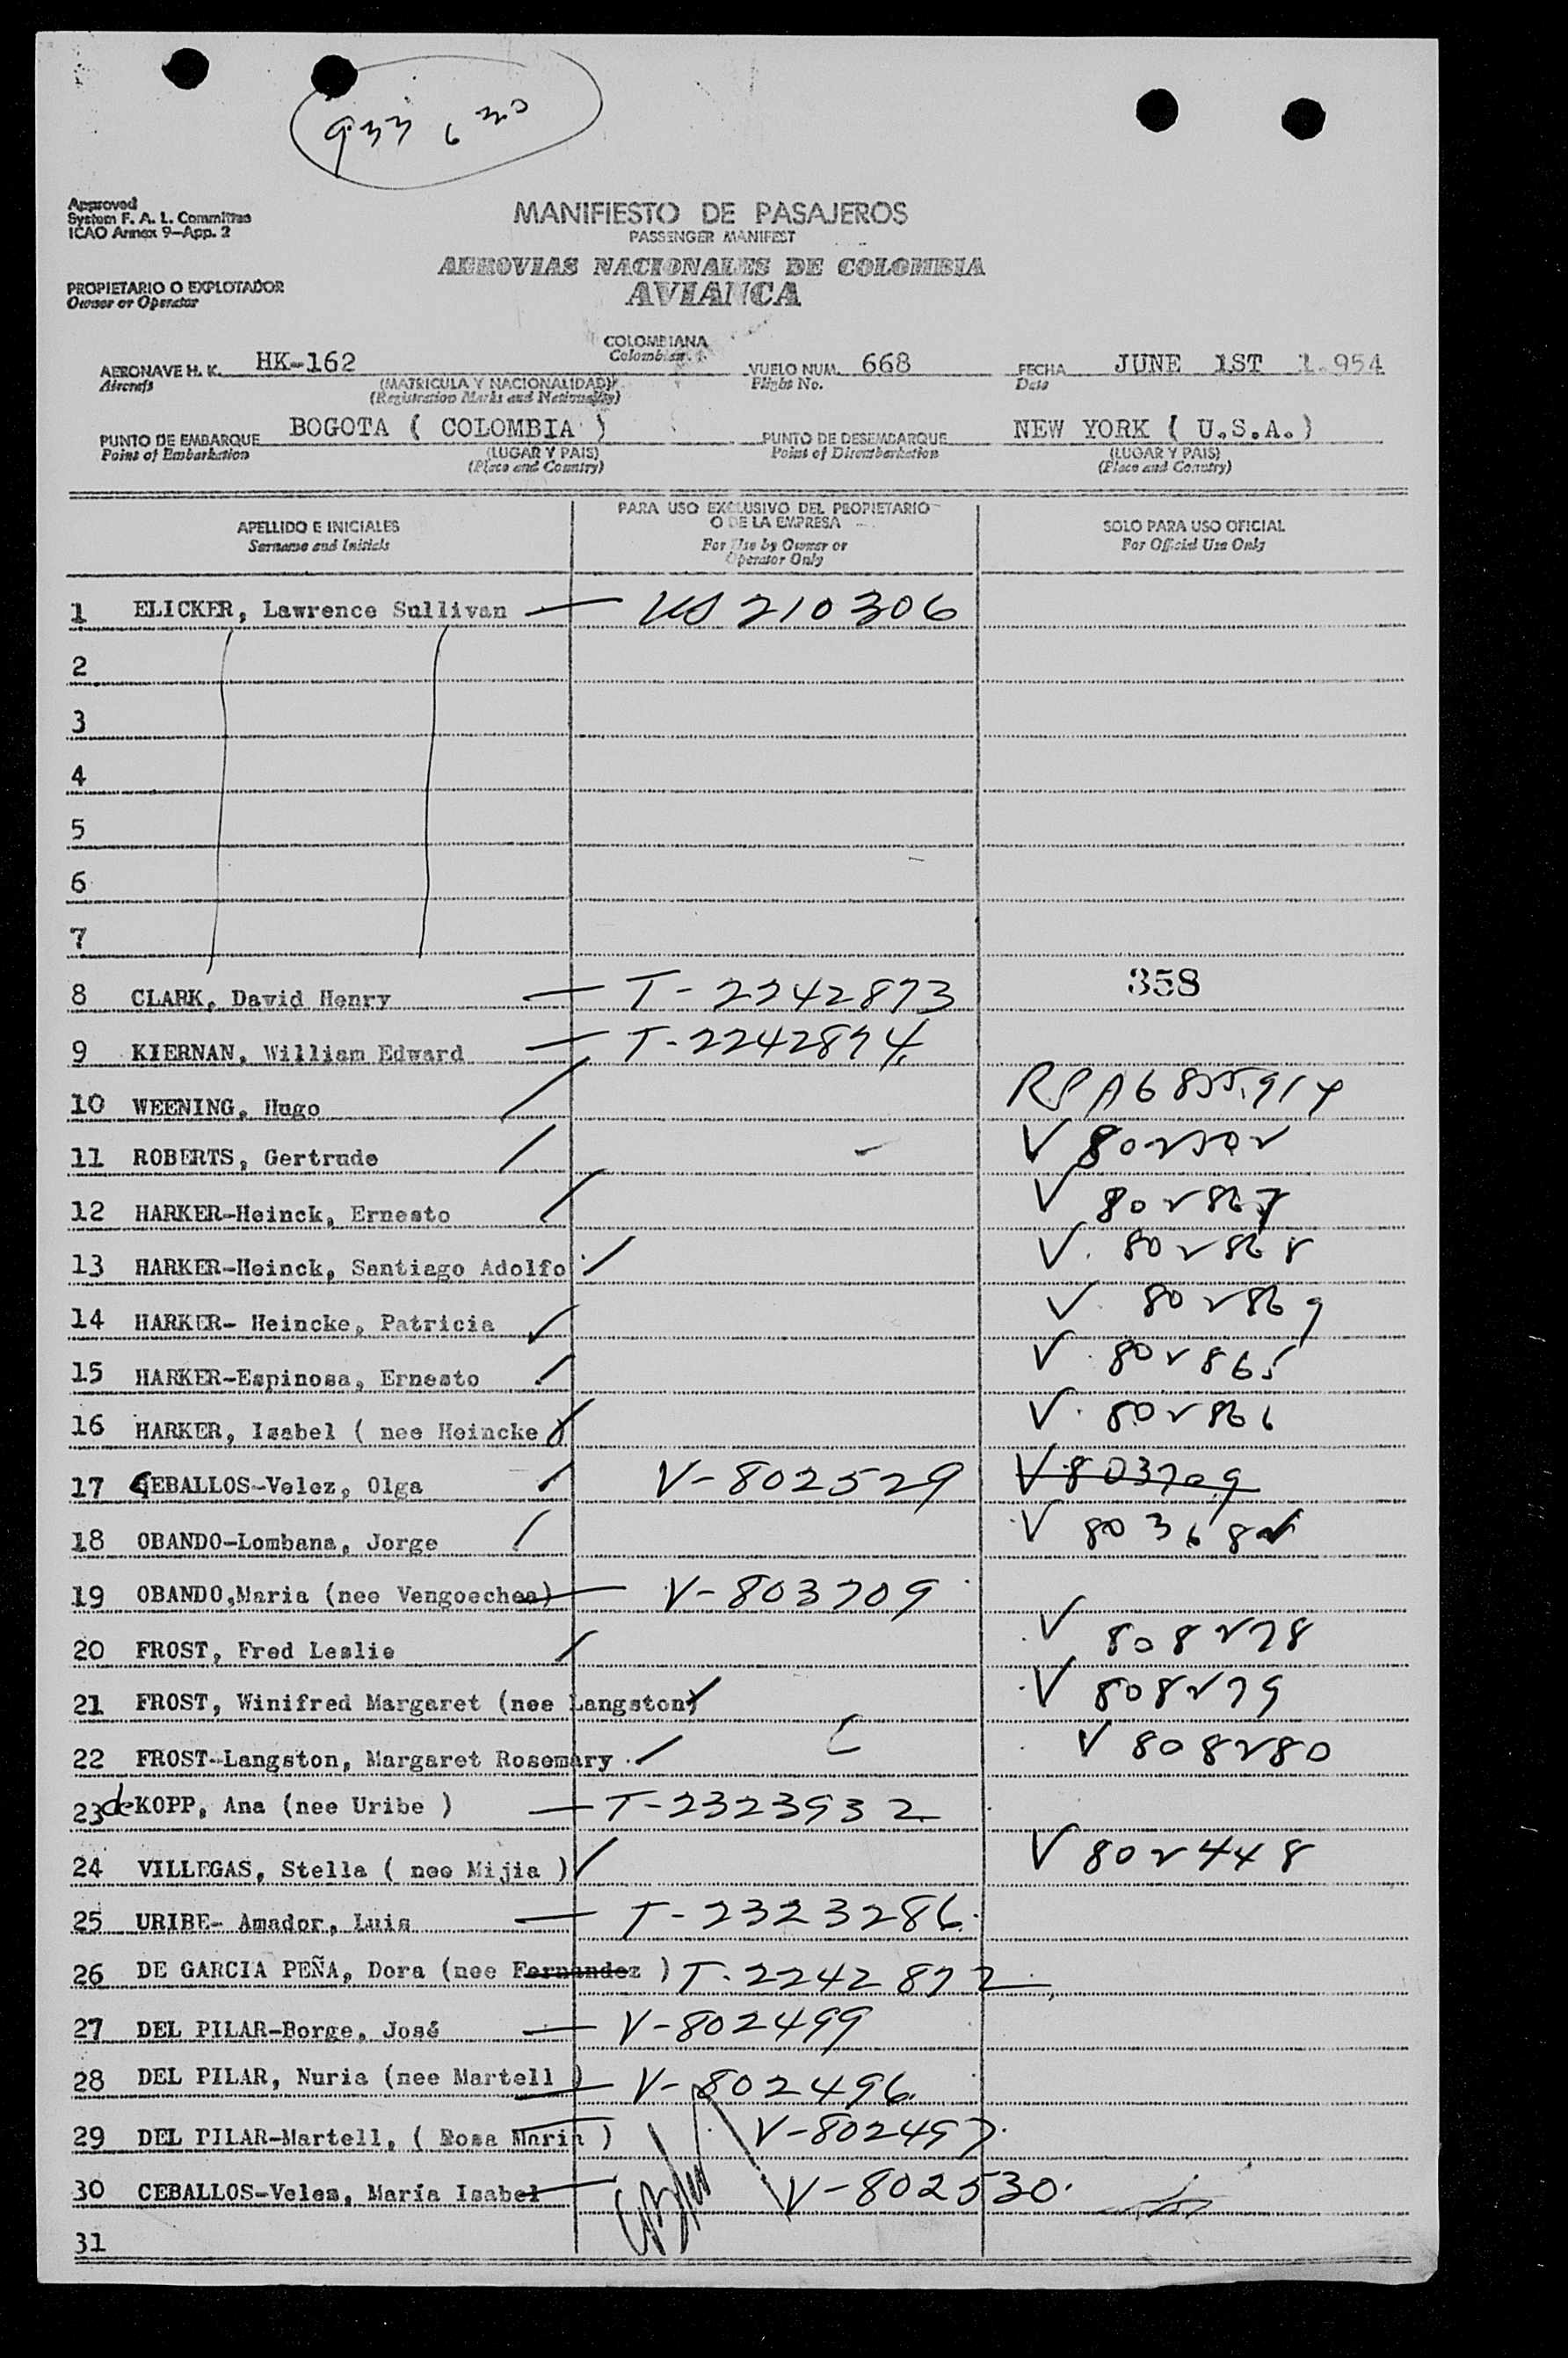 933 630
Approved
System F. A. L. Committee
ICAO Annex 9—App. 2
MANIFIESTO DE PASAJEROS
PASSENGER MANIFEST
AEROVIAS NACIONALES DE COLOMBIA
AVIANCA
PROPIETARIO O EXPLOTADOR
Owner or Operator
COLOMBIANA
Colombian
AERONAVE H. K. HK-162 VUELO NUM. 668 FECHA JUNE 1ST 1.954
Aircraft (MATRICULA Y NACIONALIDAD) Flight No. Date
(Registration Marks and Nationality)
PUNTO DE EMBARQUE BOGOTA ( COLOMBIA ) PUNTO DE DESEMBARQUE NEW YORK ( U.S.A.)
Point of Embarkation (LUGAR Y PAIS) Point of Disembarkation (LUGAR Y PAIS)
(Place and Country) (Place and Country)
APELLIDO E INICIALES
Surname and Initials
PARA USO EXCLUSIVO DEL PROPIETARIO
O DE LA EMPRESA
For Use by Owner or
Operator Only
SOLO PARA USO OFICIAL
For Official Use Only
1 ELICKER, Lawrence Sullivan — US 210306
2
3
4
5
6
7
8 CLARK, David Henry — T-2242873 358
9 KIERNAN, William Edward — T-2242874
10 WEENING, Hugo
11 ROBERTS, Gertrude V 802502
12 HARKER-Heinck, Ernesto V 802867
13 HARKER-Heinck, Santiago Adolfo V. 802868
14 HARKER- Heincke, Patricia V. 802869
15 HARKER-Espinosa, Ernesto V. 802865
16 HARKER, Isabel ( nee Heincke ) V. 802866
17 CEBALLOS-Velez, Olga V-802529 V 803709
18 OBANDO-Lombana, Jorge
19 OBANDO,Maria (nee Vengoechea) — V-803709
20 FROST, Fred Leslie V 808278
21 FROST, Winifred Margaret (nee Langston) V 808279
22 FROST-Langston, Margaret Rosemary V 808280
23 de KOPP, Ana (nee Uribe ) — T-2323932
24 VILLEGAS, Stella ( nee Mijia ) V 802448
25 URIBE- Amador, Luis — T-2323286
26 DE GARCIA PEÑA, Dora (nee Fernandez ) T-2242872
27 DEL PILAR-Borge, José — V-802499
28 DEL PILAR, Nuria (nee Martell ) — V-802496
29 DEL PILAR-Martell, ( Rosa Maria ) V-802497
30 CEBALLOS-Veles, Maria Isabel V-802530
31